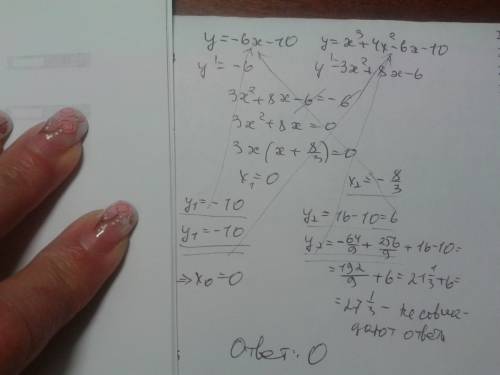 y=-6x-10
y=x³+4x²-6x-10
y'=-6
y'=3x²+8x-6
3x²+8x-6=-6
3x²+8x=0
3x(x+8/3)=0
x₁=0
x₂=-8/3
y₁=-10
y₂=16-10=6
y₁=-10
y₂=-64/9+256/9+16-10=
⇒x₀=0
=192/9+6=21 1/3+6=
=27 1/3 - не совпа-
дают ответы
Ответ: 0